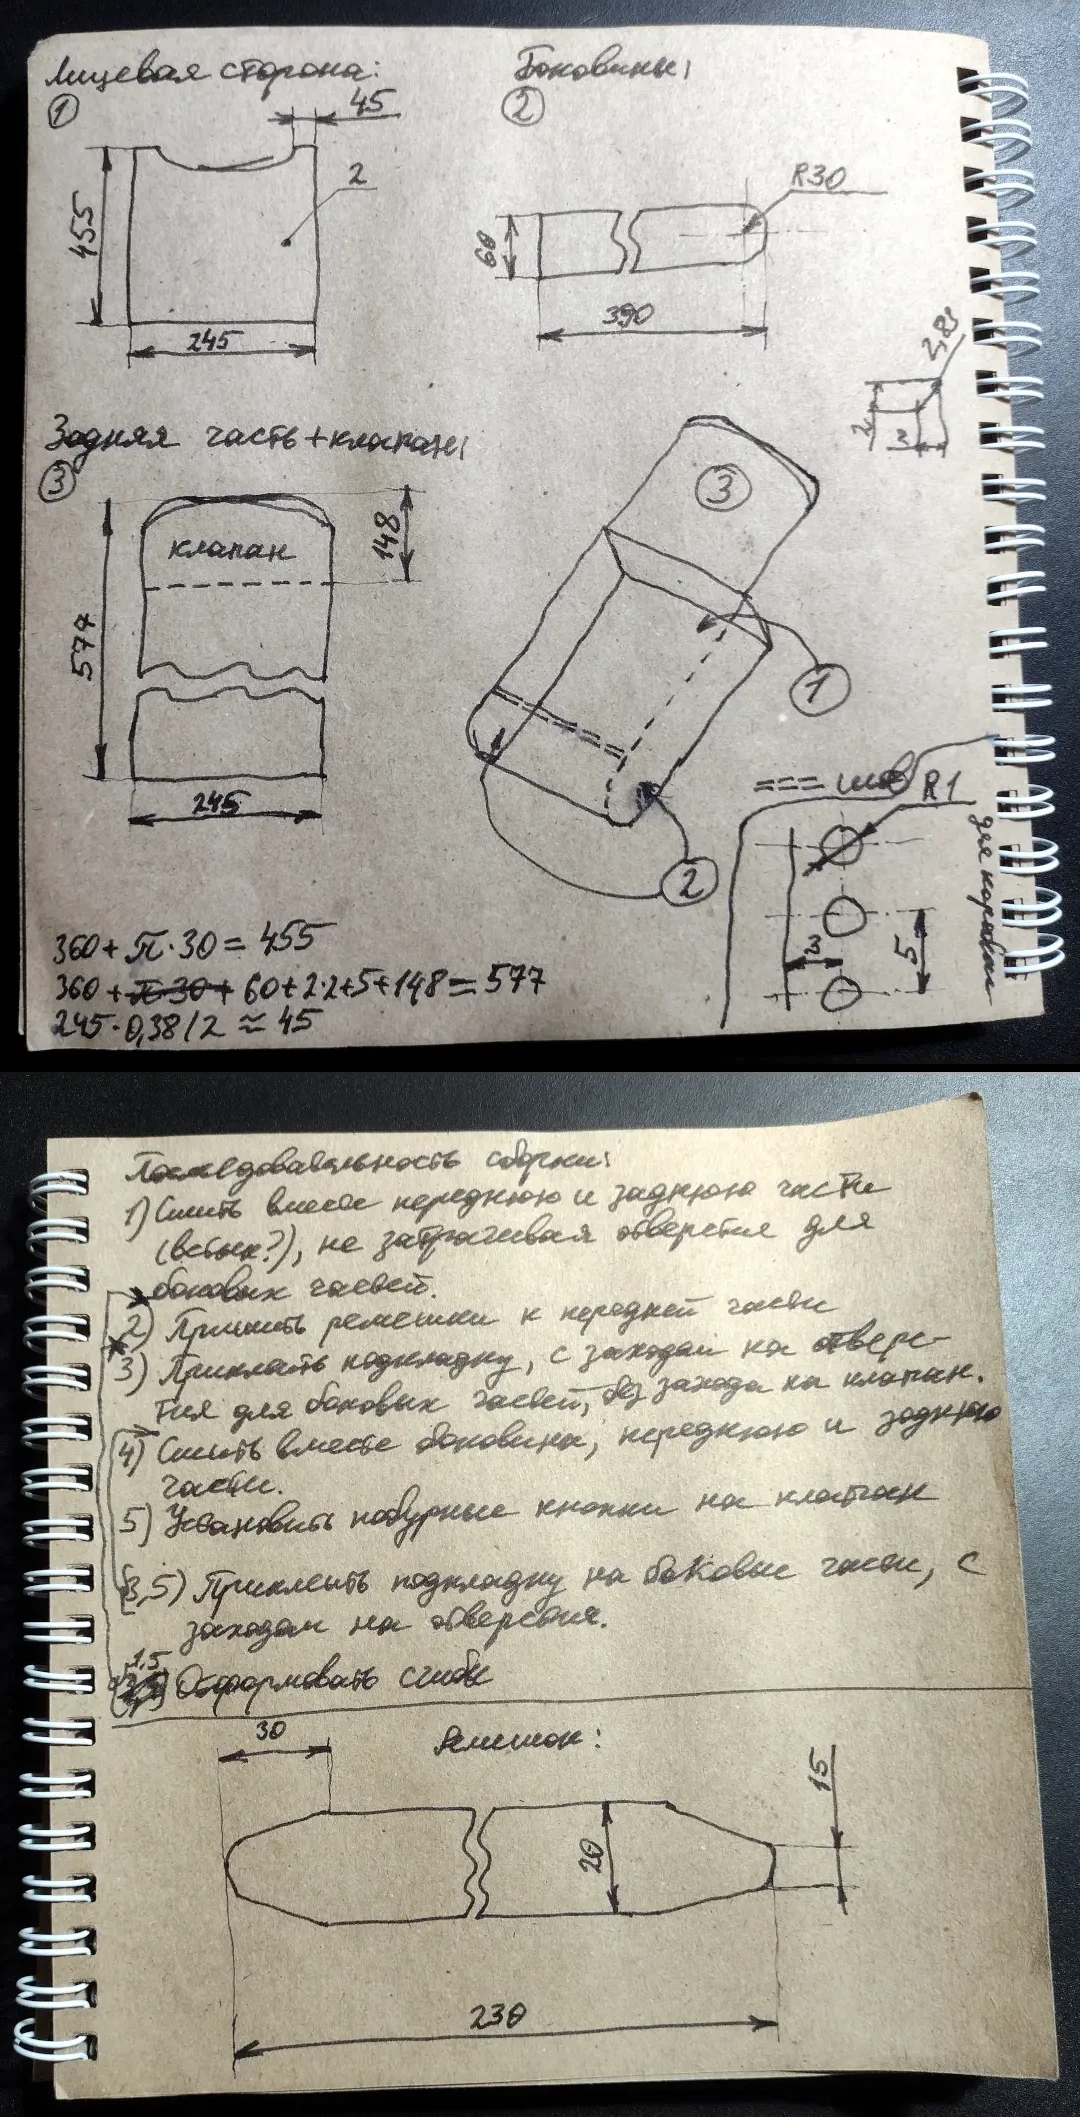 Лицевая сторона:
1
45
2
455
245
Боковины:
2
R30
60
390
2,83
2
2
Задняя часть+клапан:
3
клапан
148
577
245
3
1
2
=== шов
R1
для коробки
3
5
360+π·30=455
360+π·30+60+2·2+5+148=577
245·0,38/2≈45
Последовательность сборки:
1) Сшить вместе переднюю и заднюю части
(встык?), не затрагивая отверстия для
боковых частей.
2) Пришить ремешки к передней части
3) Приклеить подкладку, с заходом на отверс-
тия для боковых частей, без захода на клапан.
4) Сшить вместе боковины, переднюю и заднюю
части.
5) Установить кнопки на клапан
3,5) Приклеить подкладку на боковые части, с
заходом на отверстия.
1,5
Отформовать сгибы
30
Ремешок:
15
20
230